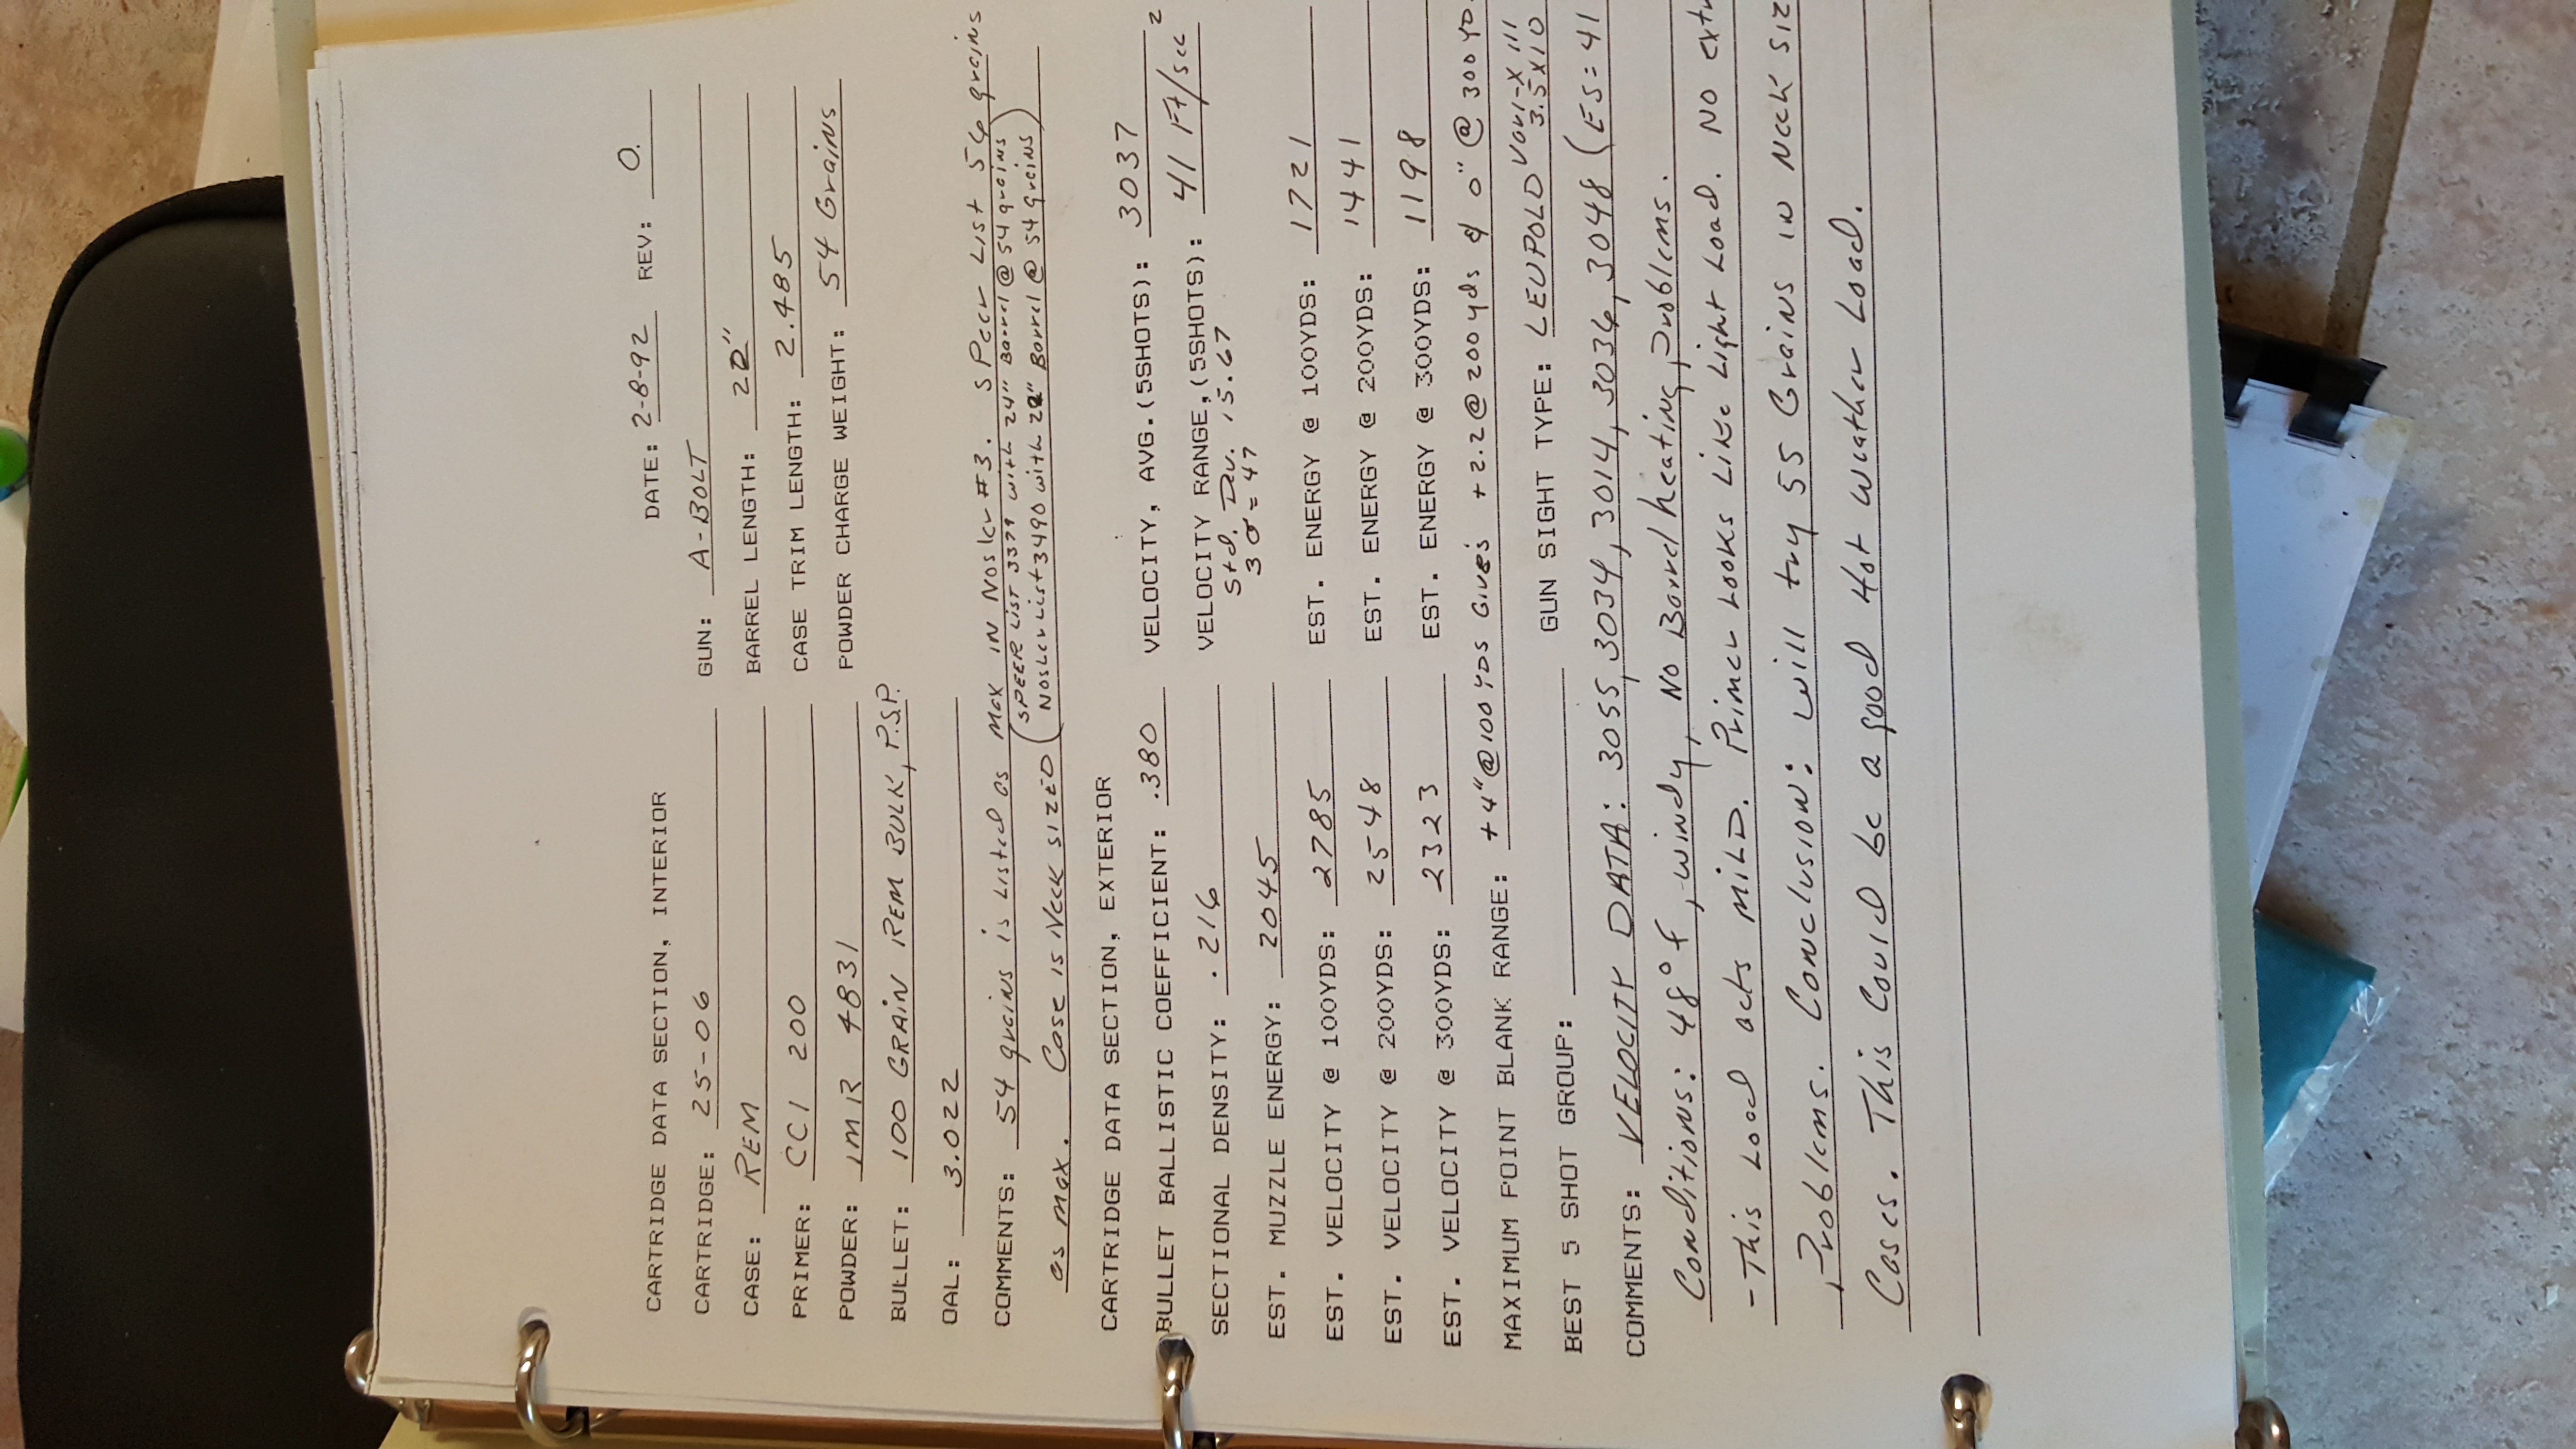 DATE: 2-8-92 REV: 0.
CARTRIDGE DATA SECTION, INTERIOR
CARTRIDGE: 25-06 GUN: A-BOLT
CASE: REM BARREL LENGTH: 22"
PRIMER: CCI 200 CASE TRIM LENGTH: 2.485
POWDER: IMR 4831 POWDER CHARGE WEIGHT: 54 Grains
BULLET: 100 GRAIN REM BULK, P.S.P.
OAL: 3.022
COMMENTS: 54 grains is Listed as Max IN Nosler #3. Speer List 56 grains
as max. Case is Neck SIZED (SPEER List 3379 with 24" Barrel @ 54 grains)
(Nosler List 3490 with 22" Barrel @ 54 grains)
CARTRIDGE DATA SECTION, EXTERIOR
BULLET BALLISTIC COEFFICIENT: .380 VELOCITY, AVG.(5SHOTS): 3037
SECTIONAL DENSITY: .216 VELOCITY RANGE,(5SHOTS): 41 Ft/sec 2
Std. Dev. 15.67
3σ = 47
EST. MUZZLE ENERGY: 2045 EST. ENERGY @ 100YDS: 1721
EST. VELOCITY @ 100YDS: 2785 EST. ENERGY @ 200YDS: 1441
EST. VELOCITY @ 200YDS: 2548 EST. ENERGY @ 300YDS: 1198
EST. VELOCITY @ 300YDS: 2323
MAXIMUM POINT BLANK RANGE: +4"@100 YDS Gives +2.2@200yds & 0" @ 300 YD.
BEST 5 SHOT GROUP: GUN SIGHT TYPE: LEUPOLD Vari-X III
3.5X10
COMMENTS: VELOCITY DATA: 3055, 3034, 3014, 3036, 3048 (ES=41
Conditions: 48°F, windy, No Barrel heating problems.
- This Load acts MILD. Primer Looks Like Light Load. No extr
Problems. Conclusion: will try 55 Grains in Neck siz
Cases. This Could be a good Hot Weather Load.